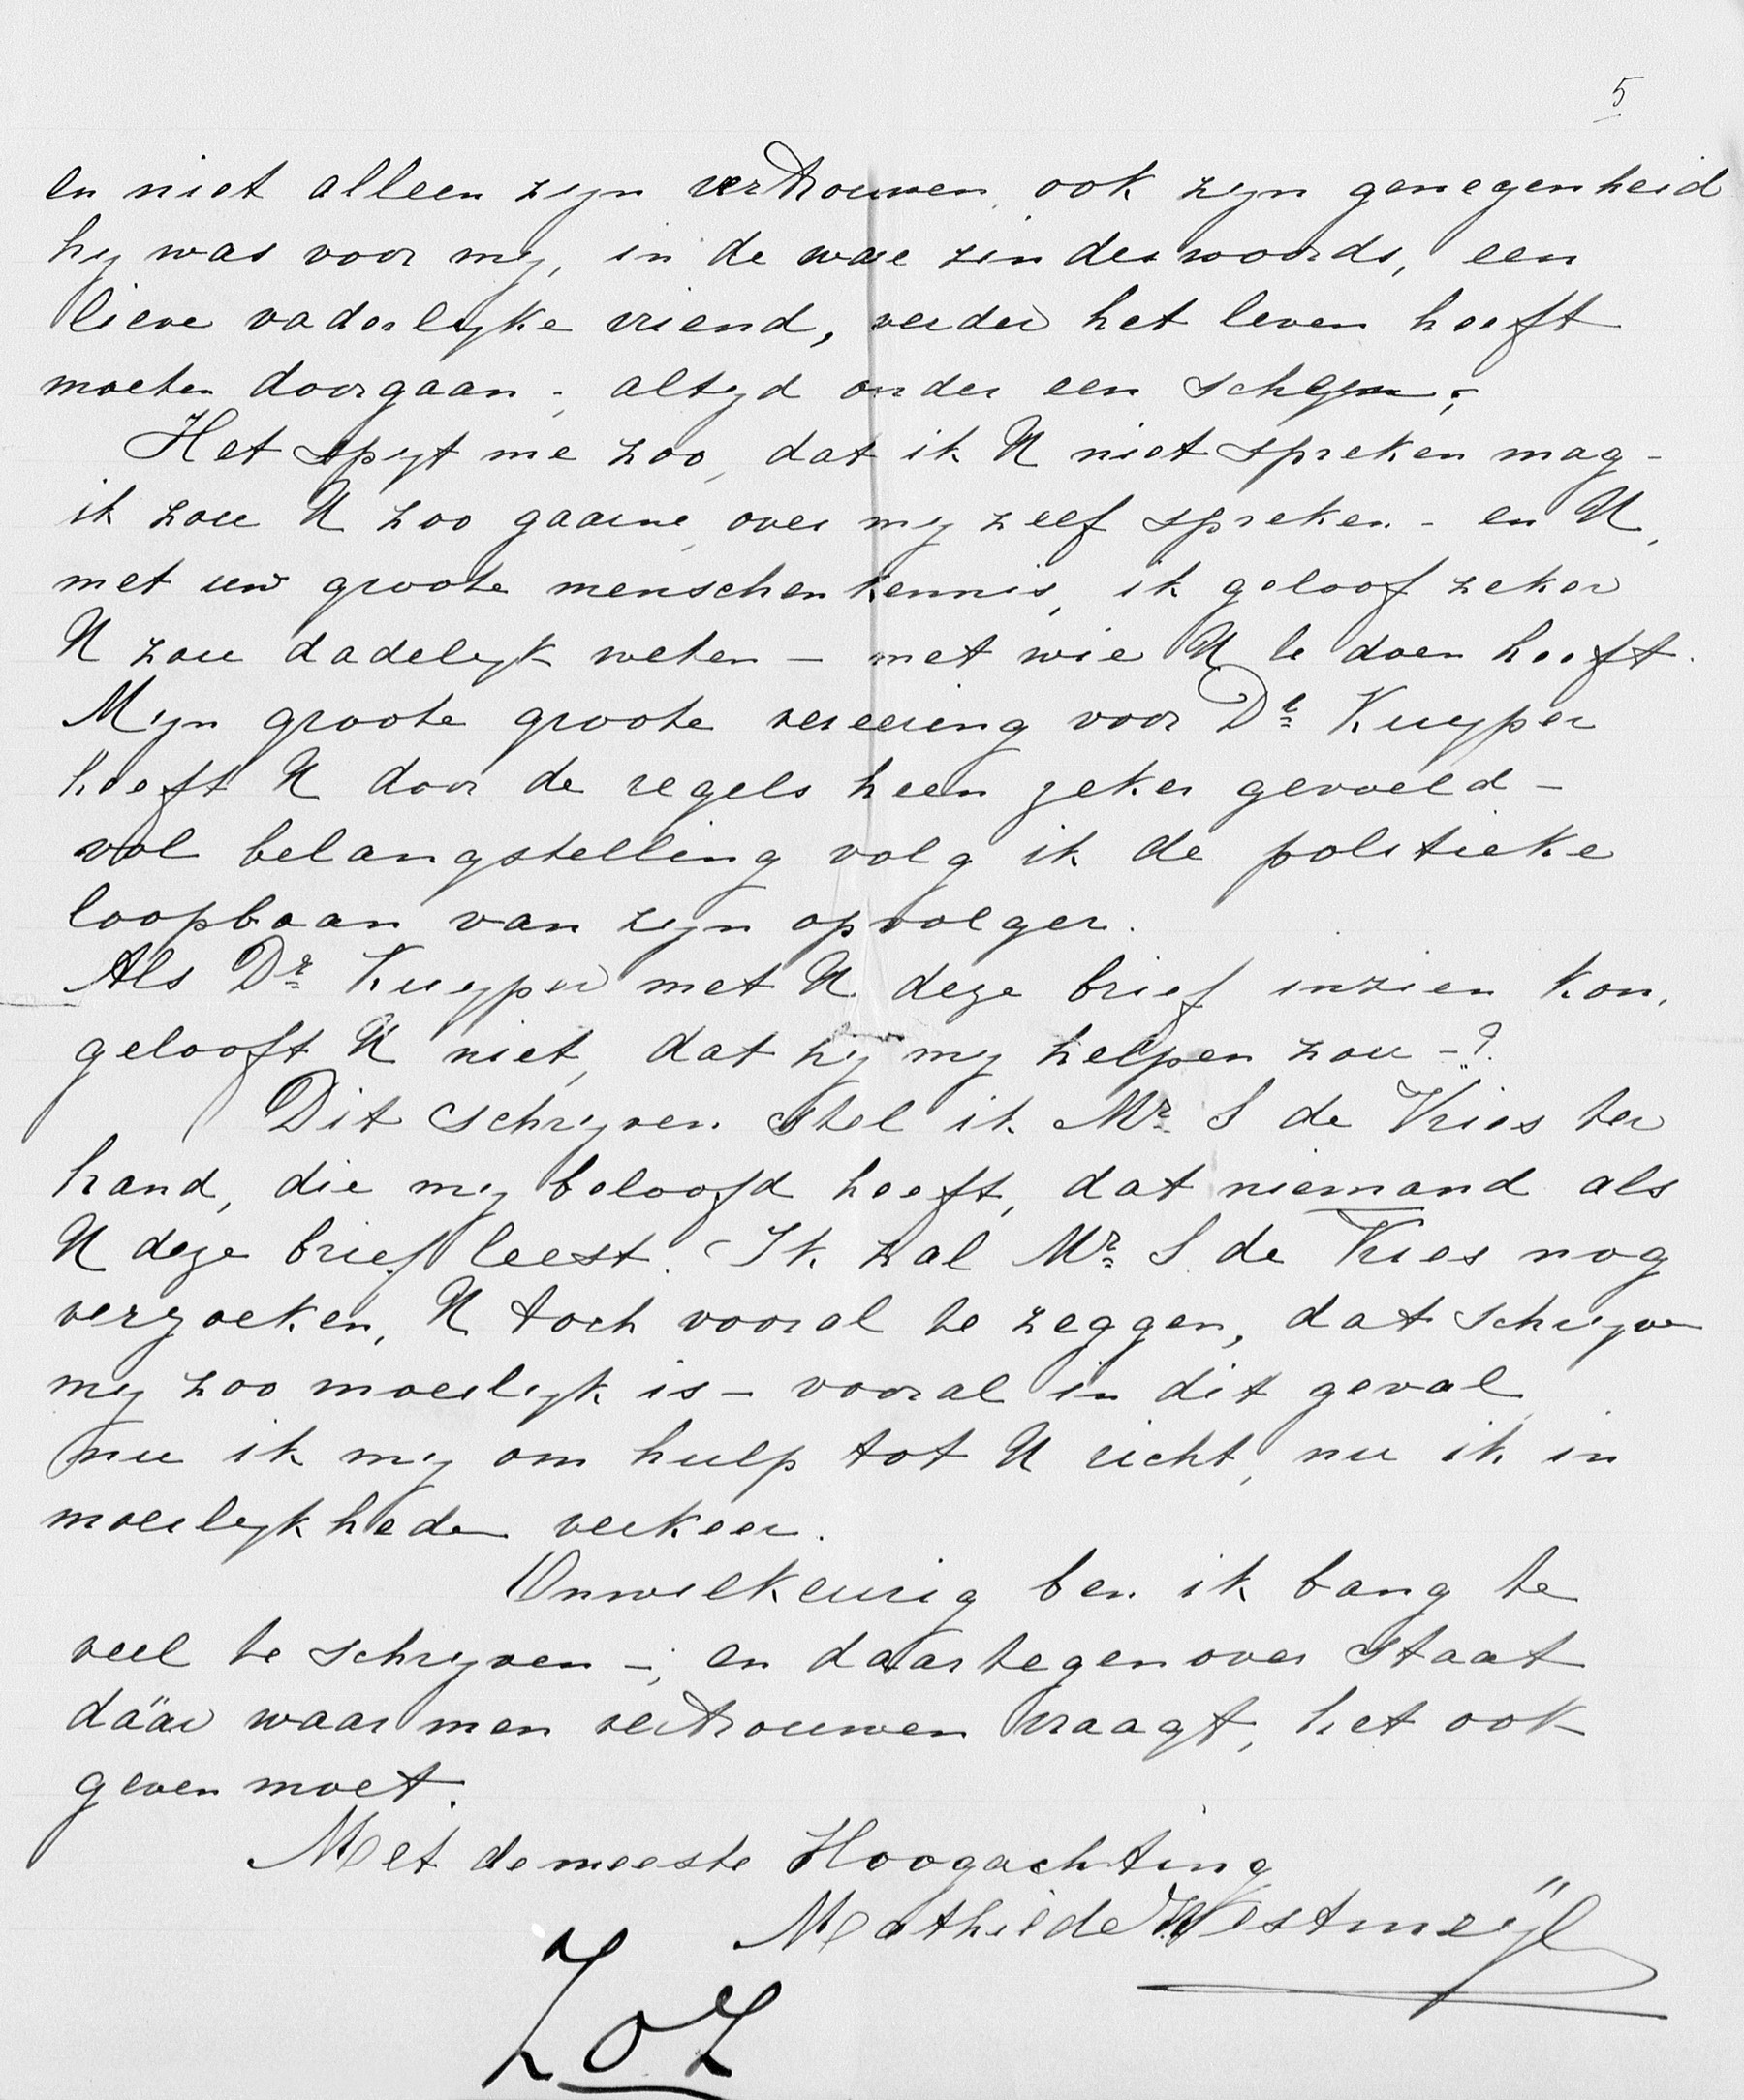 5
en niet alleen zyn vertrouwen, ook zyn genegenheid
hy was voor my, in de ware zin des woords, een
lieve vaderlyke vriend, verder het leven heeft
moeten doorgaan -, altyd onder een schyn -,
Het spyt me zoo, dat ik U niet spreken mag -
ik zou U zoo gaarne, over my zelf spreken - en U,
met uw groote menschenkennis, ik geloof zeker
U zou dadelyk weten - met wie U te doen heeft.
Myn groote groote vereering voor Dr Kuyper
heeft U door de regels heen zeker gevoeld -
vol belangstelling volg ik de politieke
loopbaan van zyn opvolger.
Als Dr Kuyper met U deze brief inzien kon,
gelooft U niet, dat hy my helpen zou -?
Dit schryven stel ik Mr S de Vries ter
hand, die my beloofd heeft, dat niemand als
U deze brief leest. Ik zal Mr S. de Vries nog
verzoeken, U toch vooral te zeggen, dat schryven
my zoo moeilyk is - vooral in dit geval
nu ik my om hulp tot U richt, nu ik in
moeilykheden verkeer.
Onwilkeurig ben ik bang te
veel te schryven -, en daartegenover staat
däär waar men vertrouwen vraagt, het ook
geven moet.
Met de meeste Hoogachting
Mathilde Westmeijer
ZOZ